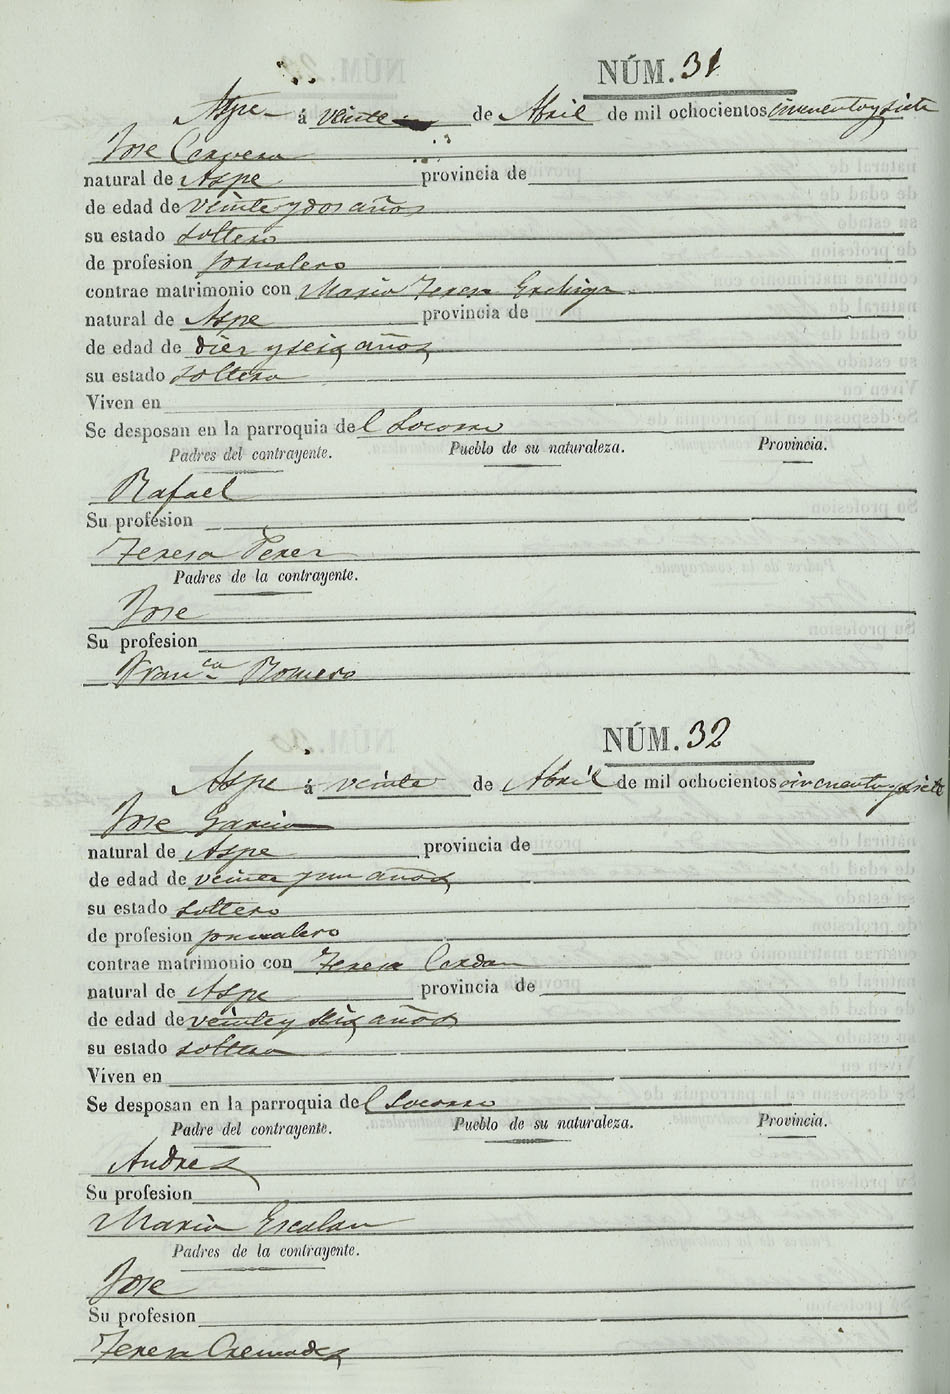 NÚM. 31
Aspe á veinte de Abril de mil ochocientos cincuenta y siete
Jose Cervera
natural de Aspe provincia de
de edad de veinte y dos años
su estado soltero
de profesion jornalero
contrae matrimonio con Maria Teresa
natural de Aspe provincia de
de edad de diez y seis años
su estado soltera
Viven en
Se desposan en la parroquia del Socorro
Padres del contrayente. Pueblo de su naturaleza. Provincia.
Rafael
Su profesion
Teresa Perez
Padres de la contrayente.
Jose
Su profesion
Franca Romero
NÚM. 32
Aspe á veinte de Abril de mil ochocientos cincuenta y siete
Jose Garcia
natural de Aspe provincia de
de edad de veinte y un años
su estado soltero
de profesion jornalero
contrae matrimonio con Teresa Cerdan
natural de Aspe provincia de
de edad de veinte y seis años
su estado soltera
Viven en
Se desposan en la parroquia del Socorro
Padre del contrayente. Pueblo de su naturaleza. Provincia.
Andres
Su profesion
Maria Escolan
Padres de la contrayente.
Jose
Su profesion
Teresa Cremades